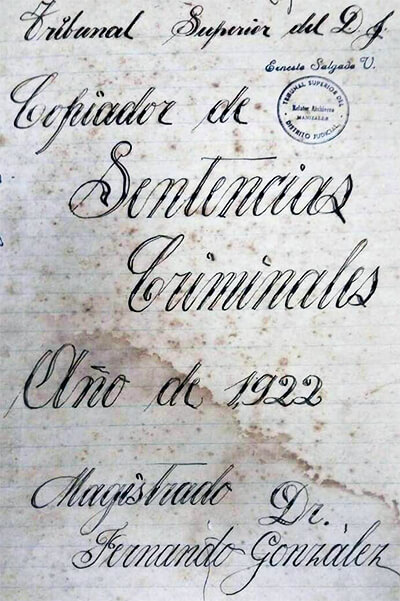 Tribunal Superior del D. J.
Ernesto Salgado V.
Copiador de
TRIBUNAL SUPERIOR DEL
Relator Archivero
MANIZALES
DISTRITO JUDICIAL
Sentencias
Criminales
Año de 1922
Magistrado Dr.
Fernando González